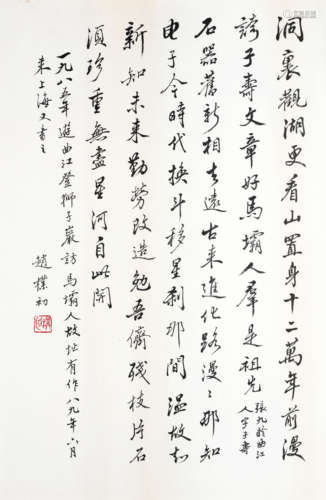 洞裏觀湖更看山置身十二萬年前漫
誇子壽文章好馬壩人羣是祖先
張九齡曲江
人字子壽
石器舊新相去遠古來進化路漫漫那知
電子今時代換斗移星刹那間溫故知
新知未來勤勞改造勉吾儕殘枝片石
須珍重無盡星河自此開
一九八五年遊曲江登獅子巖訪馬壩人故址有作八九年六月
來上海又書之
趙樸初